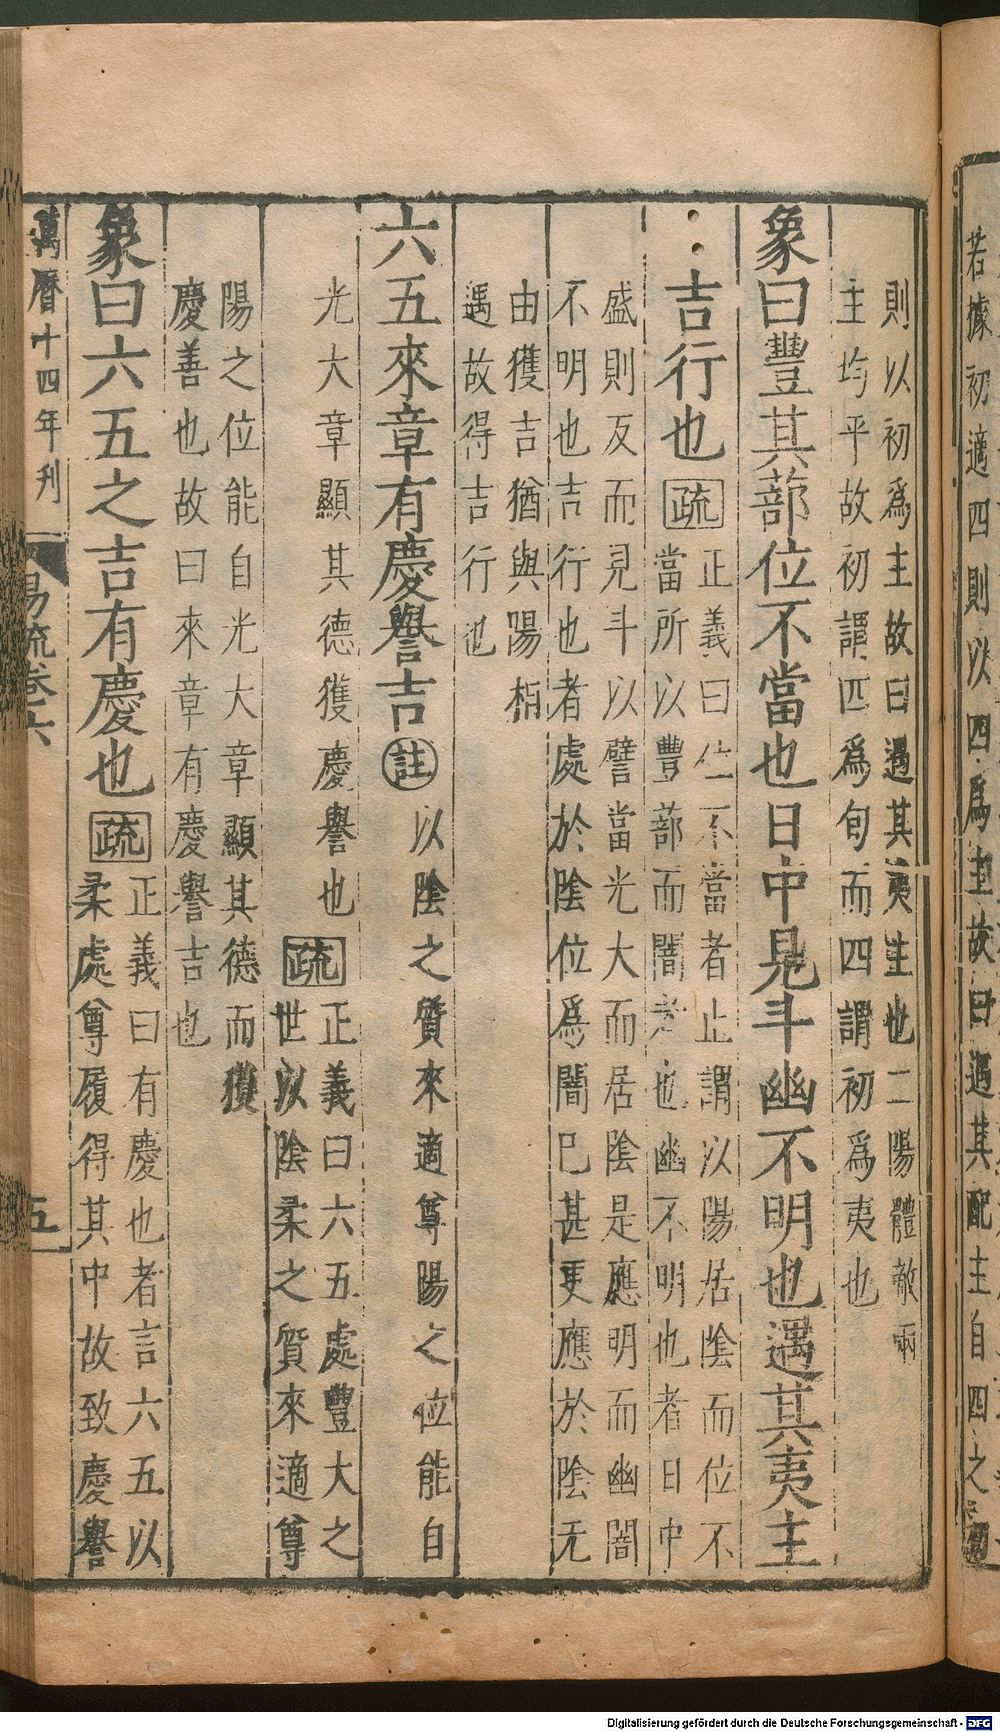 若據初適四則以四爲主故曰遇其配主自四之
則以初爲主故曰遇其夷主也二陽體敵兩
主均平故初謂四爲旬而四謂初爲夷也
象曰豐其蔀位不當也日中見斗幽不明也遇其夷主
吉行也
疏
正義曰位不當者止謂以陽居陰而位不
當所以豐蔀而闇者也幽不明也者日中
盛則反而見斗以譬當光大而居陰是應明而幽闇
不明也吉行也者處於陰位爲闇巳甚更應於陰无
由獲吉猶與陽相
遇故得吉行也
六五來章有慶譽吉
註
以陰之質來適尊陽之位能自
光大章顯其德獲慶譽也
疏
正義曰六五處豐大之
世以陰柔之質來適尊
陽之位能自光大章顯其德而獲
慶善也故曰來章有慶譽吉也
象曰六五之吉有慶也
疏
正義曰有慶也者言六五以
柔處尊履得其中故致慶譽
萬曆十四年刋
易疏卷六
五
Digitalisierung gefördert durch die Deutsche Forschungsgemeinschaft - DFG